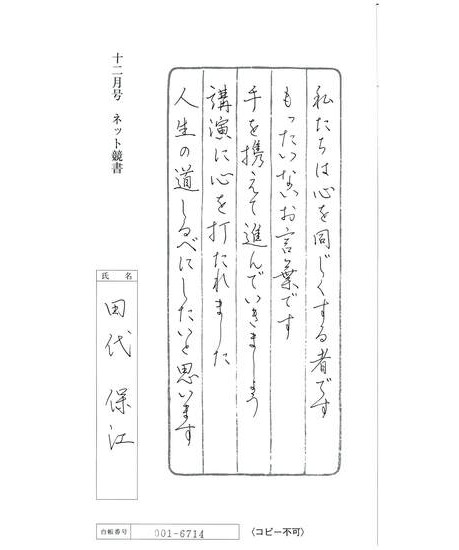 私たちは心を同じくする者です
もったいないお言葉です
手を携えて進んでいきましょう
講演に心を打たれました
人生の道しるべにしたいと思います
十二月号 ネット競書
氏名
田代 保江
台帳番号 001-6714
〈コピー不可〉